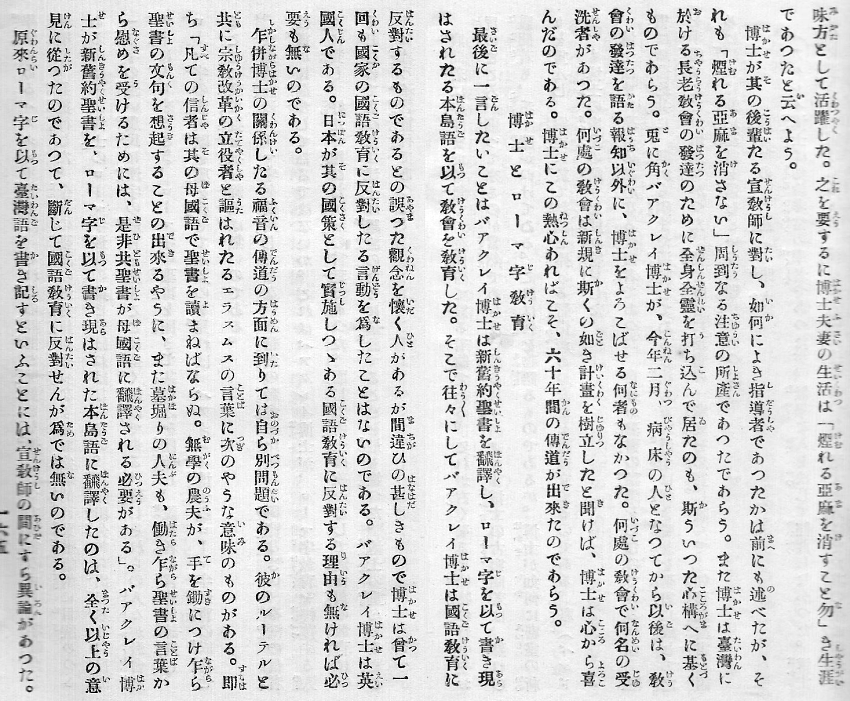 味方として活躍した。之を要するに博士夫妻の生活は「煙れる亞麻を消すこと勿」き生涯
であつたと云へよう。
博士が其の後輩たる宣敎師に對し、如何によき指導者であつたかは前にも述べたが、そ
れも「煙れる亞麻を消さない」周到なる注意の所產であつたであらう。また博士は臺灣に
於ける長老敎會の發達のために全身全靈を打ち込んで居たのも、斯ういつた心構へに基く
ものであらう。兎に角バアクレイ博士が、今年二月　病床の人となつてから以後は、敎
會の發達を語る報知以外に、博士をよろこばせる何者もなかつた。何處の敎會で何名の受
洗者があつた。何處の敎會は新規に斯くの如き計畫を樹立したと聞けば、博士は心から喜
んだのである。博士にこの熱心あればこそ、六十年間の傳道が出來たのであらう。
博士とローマ字敎育
最後に一言したいことはバアクレイ博士は新舊約聖書を飜譯し、ローマ字を以て書き現
はされたる本島語を以て敎會を敎育した。そこで往々にしてバアクレイ博士は國語敎育に
反對するものであるとの誤つた觀念を懷く人があるが間違ひの甚しきもので博士は曾て一
回も國家の國語敎育に反對したる言動を爲したことはないのである。バアクレイ博士は英
國人である。日本が其の國策として實施しつゝある國語敎育に反對する理由も無ければ必
要も無いのである。
乍併博士の關係したる福音の傳道の方面に到りては自ら別問題である。彼のルーテルと
共に宗敎改革の立役者と謳はれたるエラスムスの言葉に次のやうな意味のものがある。卽
ち「凡ての信者は其の母國語で聖書を讀まねばならぬ。無學の農夫が、手を鋤につけ乍ら
聖書の文句を想起することの出來るやうに、また墓堀りの人夫も、働き乍ら聖書の言葉か
ら慰めを受けるためには、是非共聖書が母國語に飜譯される必要がある」。バアクレイ博
士が新舊約聖書を、ローマ字を以て書き現はされた本島語に飜譯したのは、全く以上の意
見に從つたのであつて、斷じて國語敎育に反對せんが爲では無いのである。
原來ローマ字を以て臺灣語を書き記すといふことには、宣敎師の間にすら異論があつた。
一六五